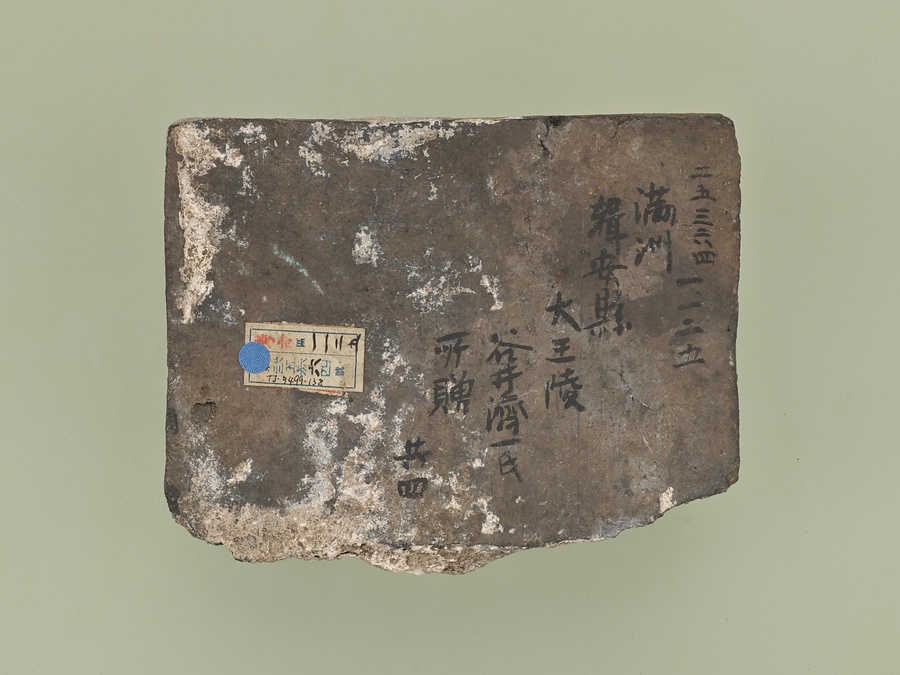 二五三三四 一一二五
満洲
輯安縣
大王陵
谷井濟一氏
所贈
共四
TJ-5499-138